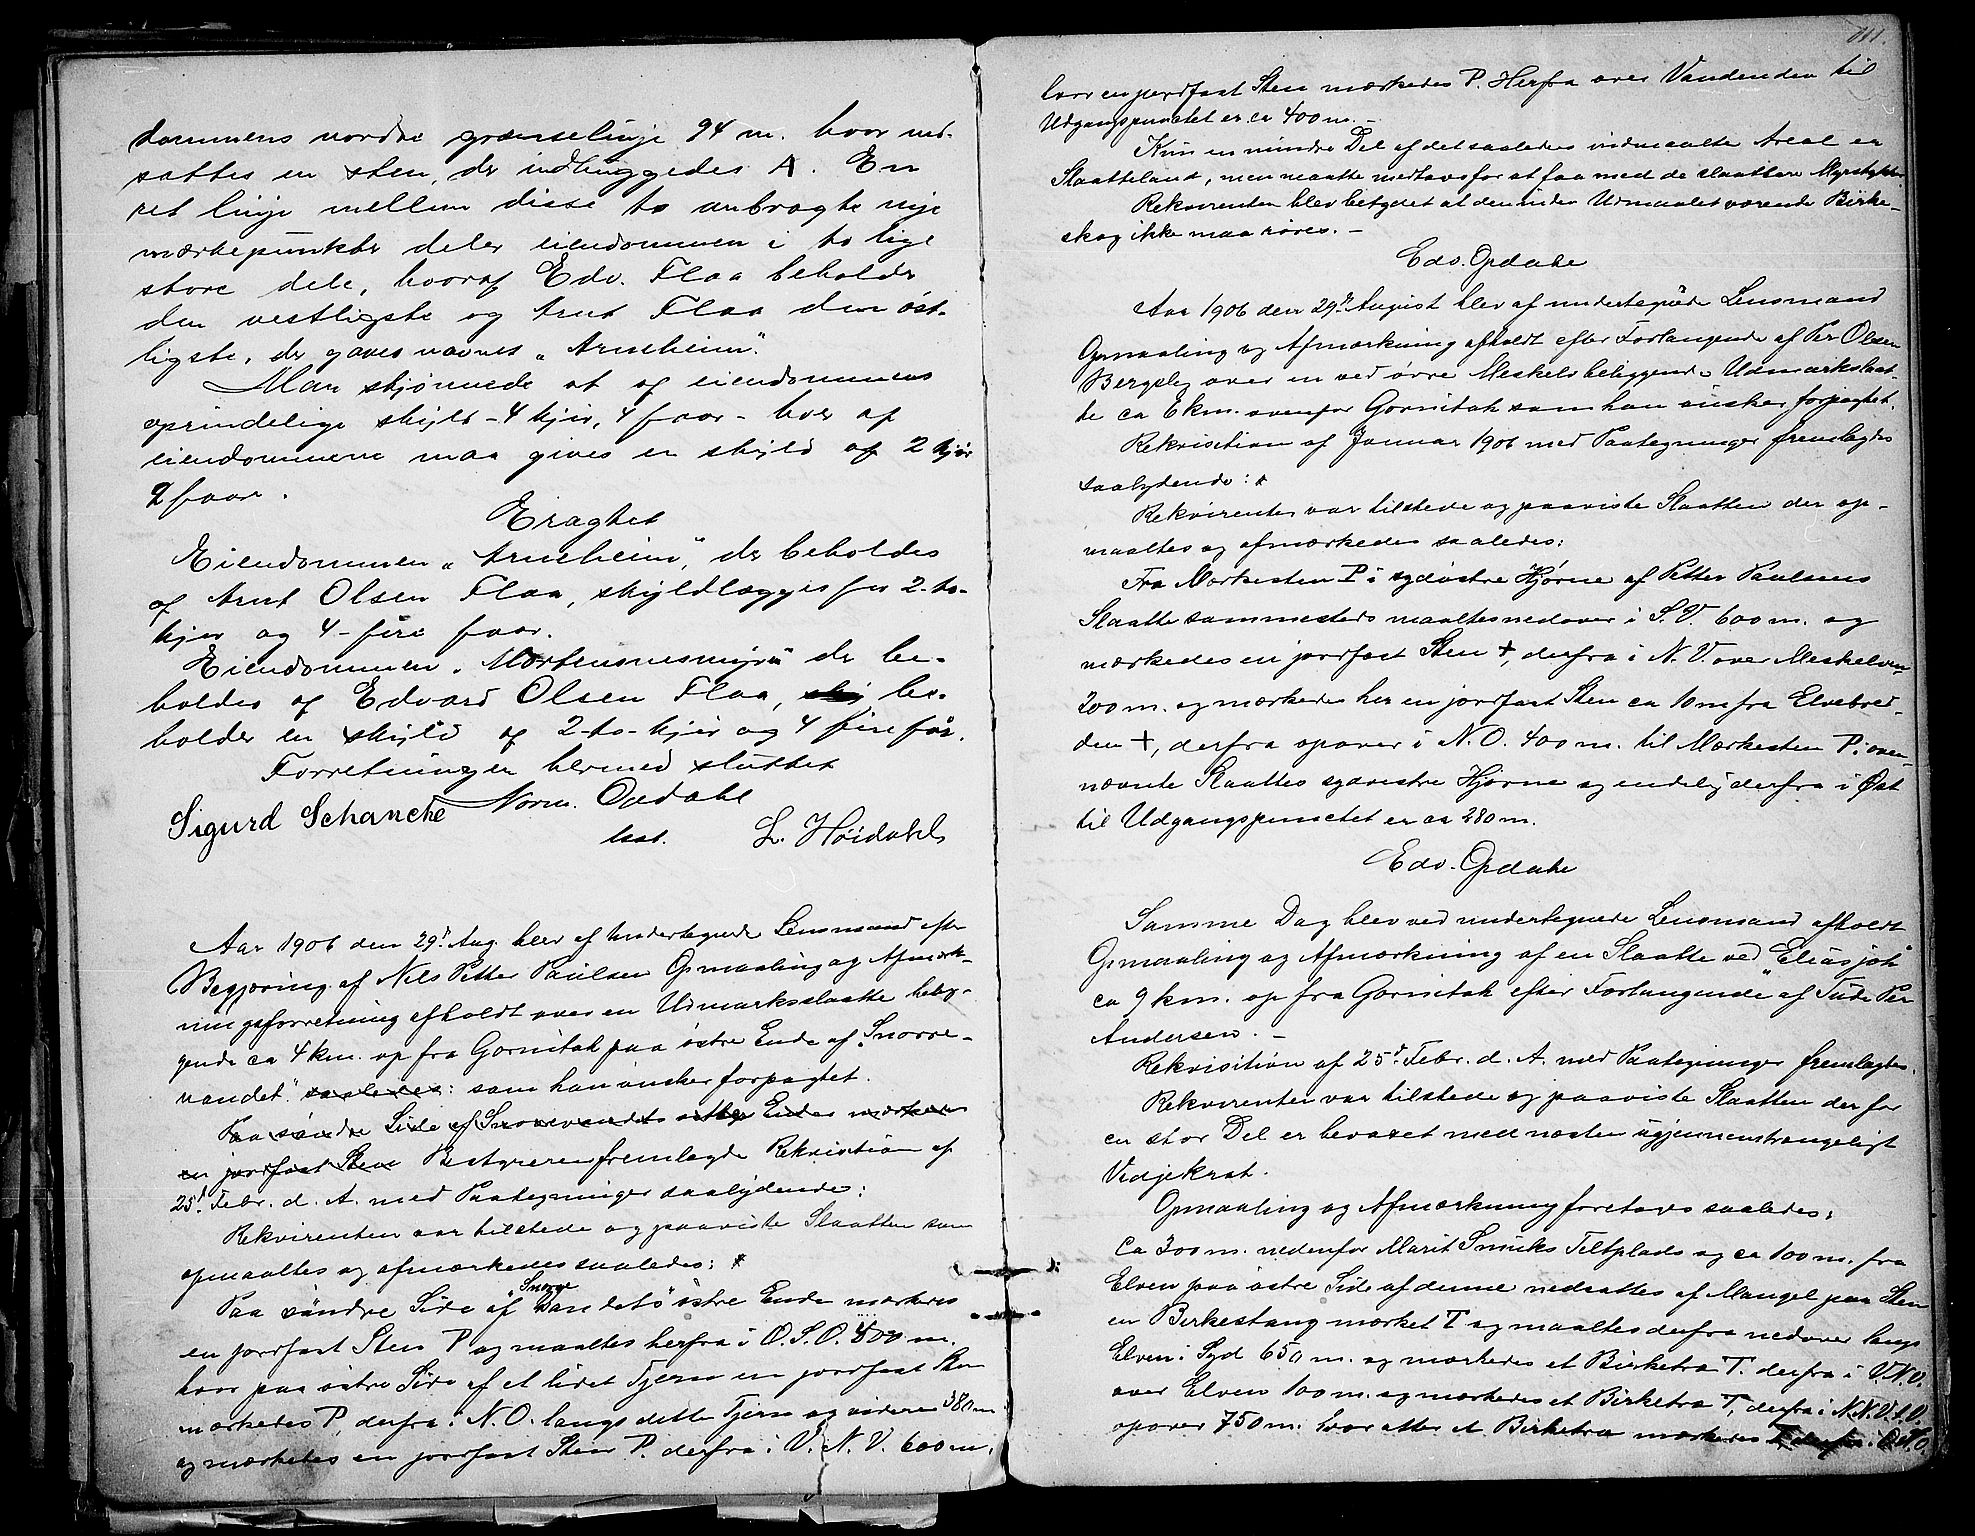 dommens nordre grænselinje 94 m. hvor ned-
sattes en sten, der indhuggedes A. En
ret linje mellem disse to anbragte nye
mærkepunkter deler eiendommen i to lige
store dele, hvoraf Edv. Flaa beholder
den vestligste og Arnt Flaa den øst-
ligste, der gaves navnet "Arneheim".
Man skjønnede at af eiendommens
oprindelige skyld - 4 kjør, 4 faar - hver af
eiendommene maa gives en skyld af 2 kjør
2 faar.
Eragtet
Eiendommen "Arneheim", der beholdes
af Arnt Olsen Flaa, skyldlægges for 2-to-
kjør og 4-fire faar.
Eiendommen "Mortensnesmyra" der be-
holdes af Edvard Olsen Flaa, be-
holder en skyld af 2-to-kjør og 4 fire får.
Forretningen hermed sluttet
Sigurd Schanche Norm. Opdahl
L. Høidahl
Aar 1906 den 29d Aug. blev af undertegnede Lensmand efter
Begjæring af Nils Petter Paulsen Opmaaling og Afmærk-
ningsforretning afholdt over en Udmarksslaatte belig-
gende ca 4 km. op fra Gornitak paa østre Ende af "Snorre-
vandet" saaledes: som han ønsker forpagtet.
Paa søndre Side af Snorrevandets østre Ende mærkedes
en jordfast Sten Bestyreren fremlagde Rekvisition af
25d Febr. d. A. med Paategninger saalydende:
Rekvirenten var tilstede og paaviste Slaatten som
opmaaltes og afmærkedes saaledes: *
Snorre
Paa søndre Side af vandets østre Ende mærkedes
en jordfast Sten P og maaltes herfra i O.S.O. 400 m.
hvor paa østre Side af et lidet Tjern en jordfast Sten
mærkedes P, derfra i N.O. langs dette Tjern og videre 380 m.
og mærkedes en jordfast Sten P. derfra i V.N.V. 600 m.
111.
hvor en jordfast Sten mærkedes P. Herfra over Vandenden til
Udgangspunctet er ca 400 m. -
Kun en mindre Del af det saaledes indmaalte Areal er
Slaatteland, men maatte medtaves for at faa med de slaatbare Myrstykker.
Rekvirenten blev betydet at den inden Udmaalet værende Birke-
skog ikke maa røres. -
Edv. Opdahl
Aar 1906 den 29d August blev af undertegnede Lensmand
Opmaaling og Afmærkning afholdt efter Forlangende af Per Olsen
Bergeby over en ved øvre Meskelv beliggende Udmarkslaat-
te ca 6 km. ovenfor Gornitak som han ønsker forpagtet.
Rekvisition af Januar 1906 med Paategninger fremlagdes
saalydende: *
Rekvirenten var tilstede og paaviste Slaatten der op-
maaltes og afmærkedes saaledes:
Fra Mærkesten P i sydøstre Hjørne af Petter Paulsens
Slaatte sammesteds maaltes nedover i S.V. 600 m. og
mærkedes en jordfast Sten +, derfra i N.V. over Meskelven
200 m. og mærkedes her en jordfast Sten ca 10 m fra Elvebred-
den +, derfra opover i N.O. 400 m. til Mærkesten P i oven-
nævnte Slaattes sydvestre Hjørne og endelig derfra i Øst
til Udgangspunctet er ca 280 m.
Edv. Opdahl
Samme Dag blev ved undertegnede Lensmand afholdt
Opmaaling og Afmærkning af en Slaatte ved "Eliasjok"
ca 9 km. op fra Gornitak efter Forlangende af Tude Per
Andersen. -
Rekvisition af 25d Febr. d. A. med Paategninger fremlagdes.
Rekvirenten var tilstede og paaviste Slaatten der for
en stor Del er bevoxet med næsten ugjennemtrængeligt
Vidjekrat.
Opmaaling og Afmærkning foretoves saaledes:
Ca 300 m. nedenfor Marit Smuks Teltplads og ca 100 m. fra
Elven paa østre Side af denne nedsattes af Mangel paa Sten
en Birkestang mærket T og maaltes derfra nedover langs
Elven i Syd 650 m. og mærkedes et Birketræ T. derfra i V.N.V.
over Elven 100 m. og mærkedes et Birketræ T, derfra i N.N.V.
opover 750 m. hvor atter et Birketræ mærkedes T, derfra i